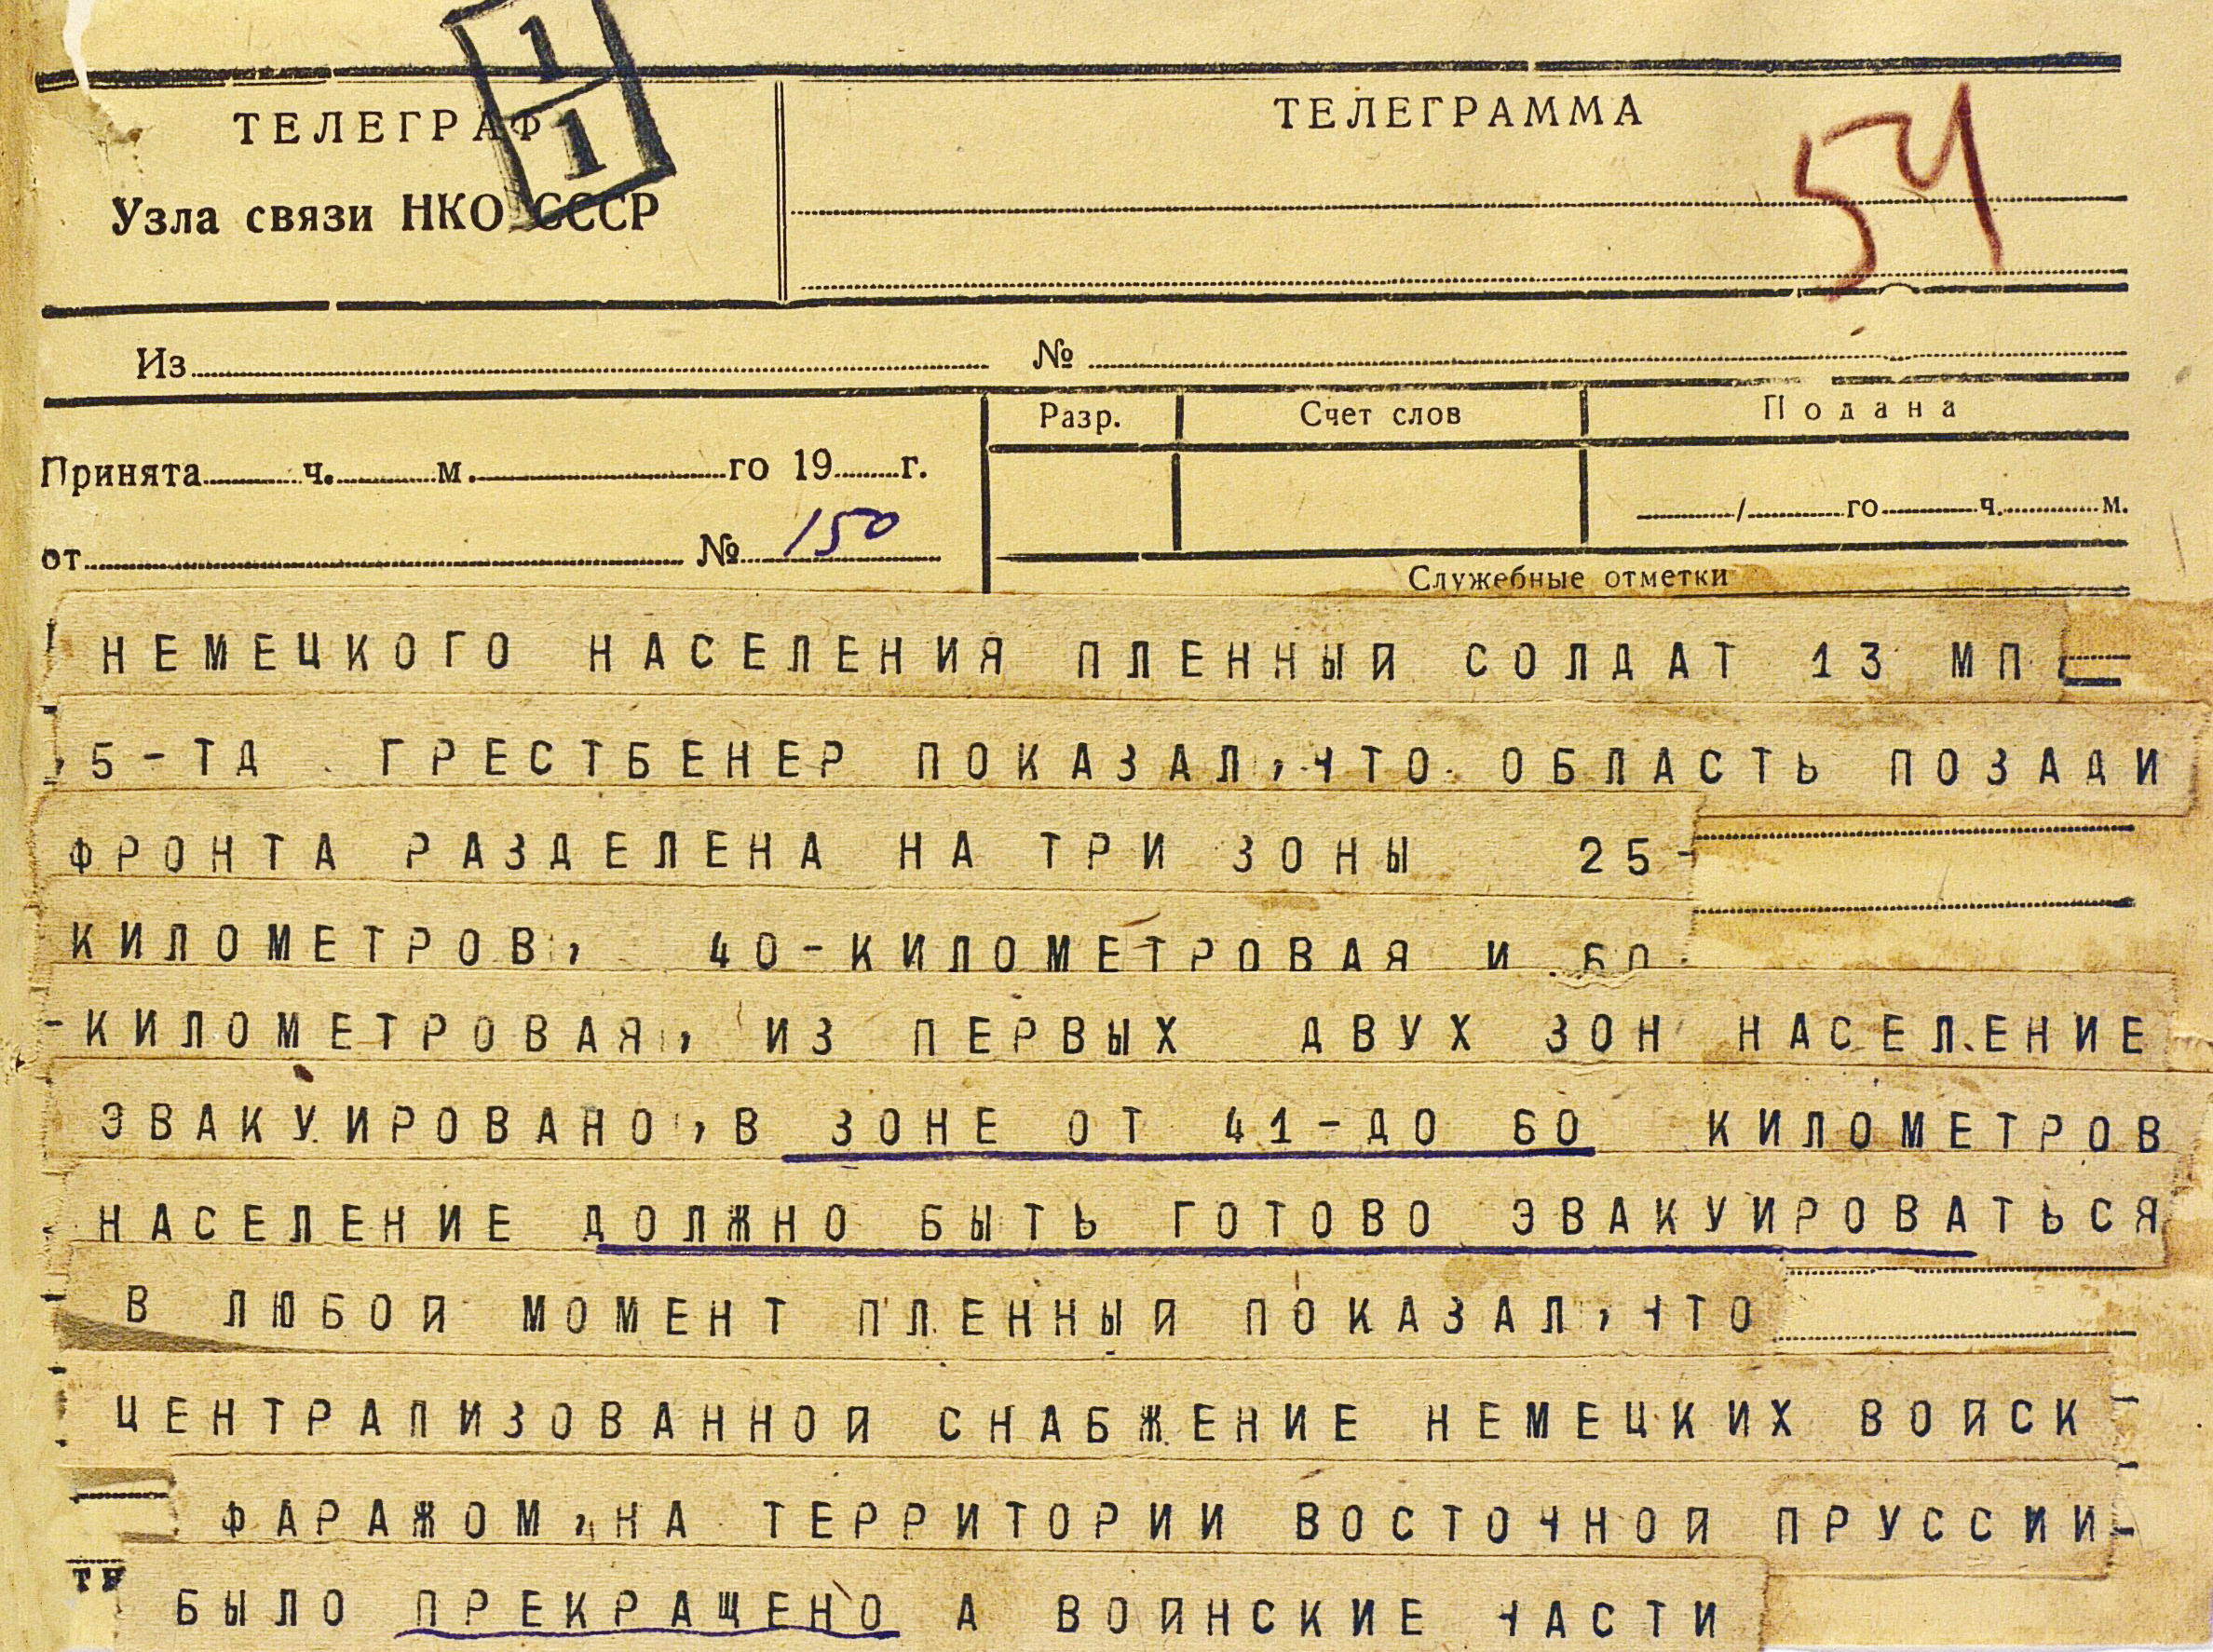 1
1
ТЕЛЕГРАФ
Узла связи НКО СССР
ТЕЛЕГРАММА
54
Из № 
Разр. Счет слов Подана
Принята ч. м. го 19 г.
/ го ч. м.
от № 150
Служебные отметки
НЕМЕЦКОГО НАСЕЛЕНИЯ ПЛЕННЫЙ СОЛДАТ 13 МП
5-ТД ГРЕСТБЕНЕР ПОКАЗАЛ, ЧТО ОБЛАСТЬ ПОЗАДИ
ФРОНТА РАЗДЕЛЕНА НА ТРИ ЗОНЫ 25-
КИЛОМЕТРОВ, 40-КИЛОМЕТРОВАЯ И 60
-КИЛОМЕТРОВАЯ, ИЗ ПЕРВЫХ ДВУХ ЗОН НАСЕЛЕНИЕ
ЭВАКУИРОВАНО, В ЗОНЕ ОТ 41-ДО 60 КИЛОМЕТРОВ
НАСЕЛЕНИЕ ДОЛЖНО БЫТЬ ГОТОВО ЭВАКУИРОВАТЬСЯ
В ЛЮБОЙ МОМЕНТ ПЛЕННЫЙ ПОКАЗАЛ, ЧТО
ЦЕНТРАЛИЗОВАННОЙ СНАБЖЕНИЕ НЕМЕЦКИХ ВОЙСК
ФАРАЖОМ, НА ТЕРРИТОРИИ ВОСТОЧНОЙ ПРУССИИ-
БЫЛО ПРЕКРАЩЕНО А ВОИНСКИЕ ЧАСТИ